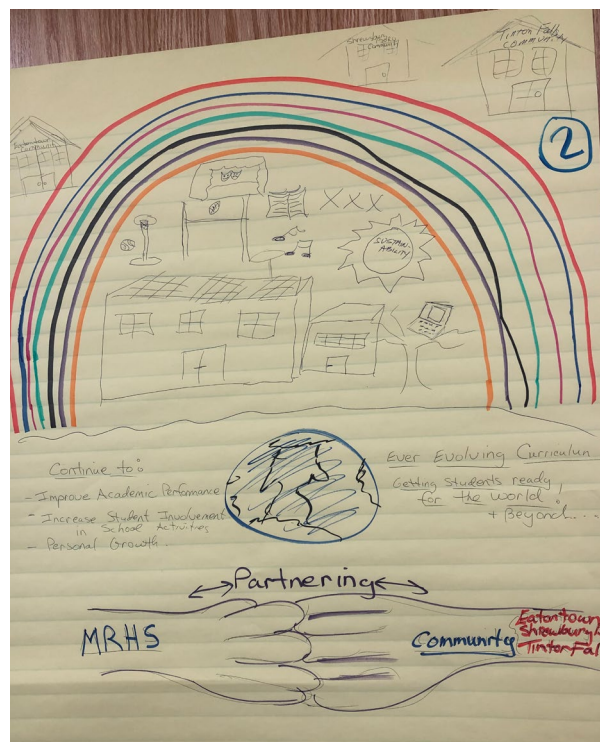 Shrewsbury
Community
Tinton Falls
Community
Eatontown
Community
2
XXX
SUSTAIN-
ABILITY
Continue to:
- Improve Academic Performance
- Increase Student Involvement
in School Activities
- Personal Growth
Ever Evolving Curriculum
Getting Students ready
for the world!
+ Beyond...
Partnering
MRHS
Community
Eatontown
Shrewsbury
Tinton Fal